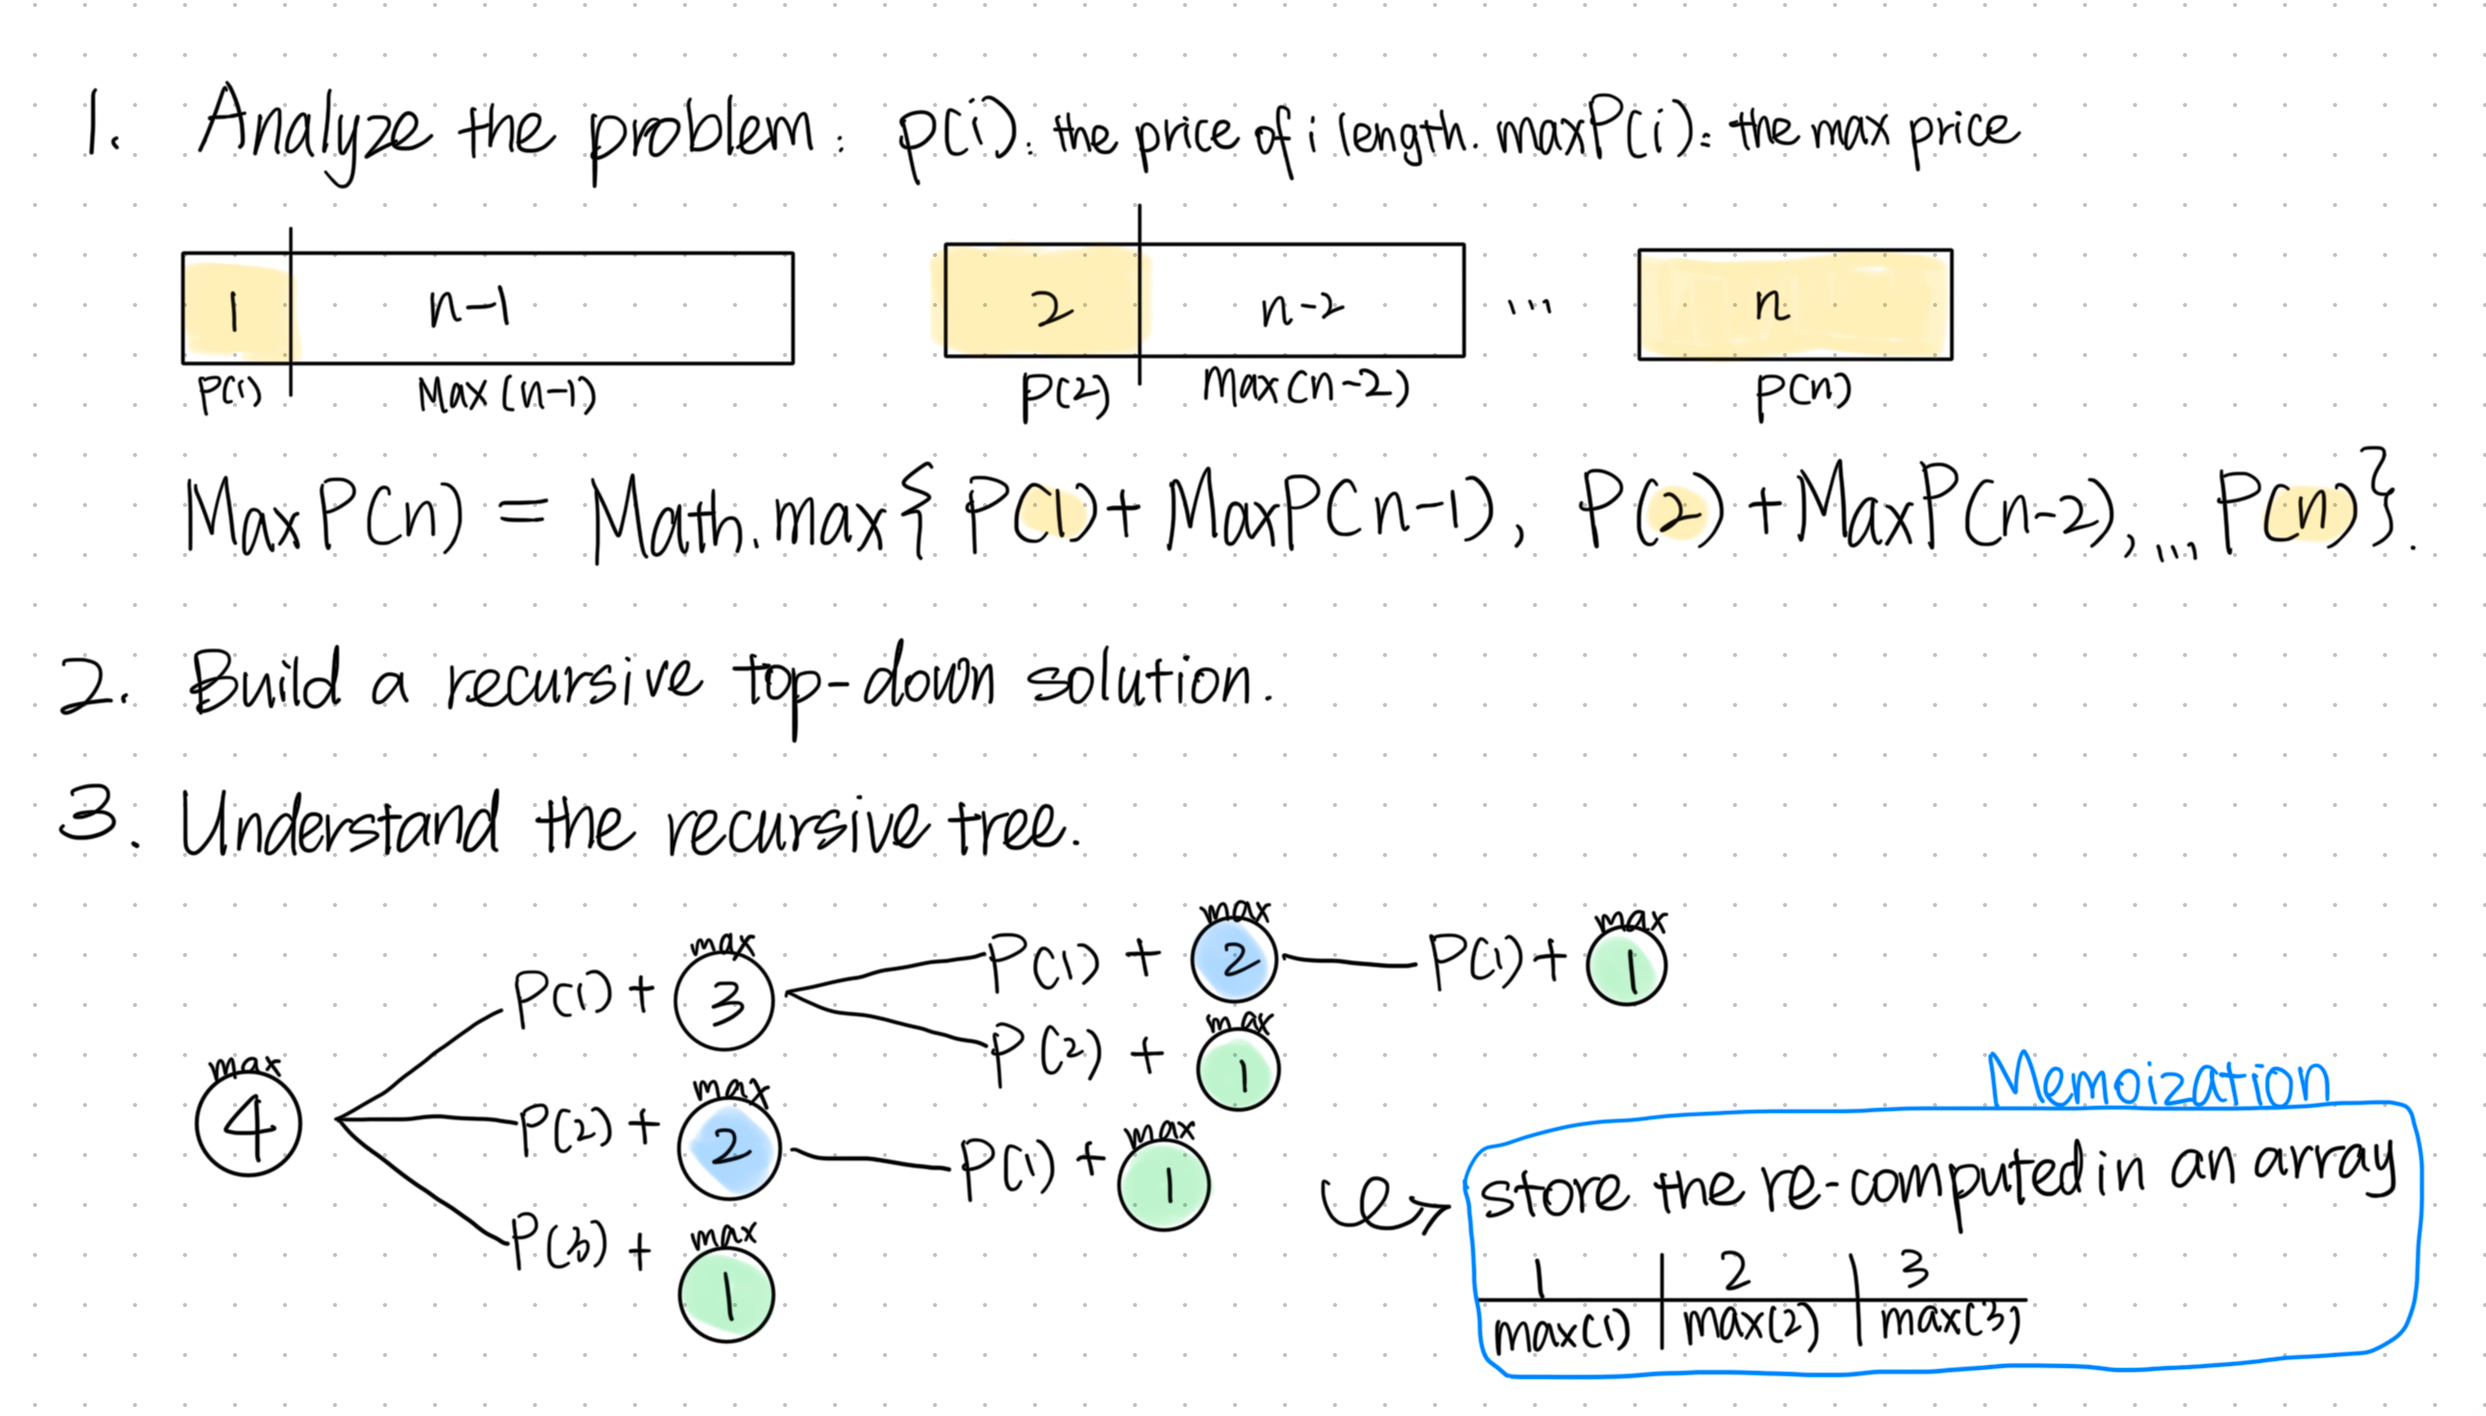 1. Analyze the problem: p(i): the price of i length. maxP(i): the max price
1 n-1 2 n-2 ... n
P(1) Max(n-1) P(2) max(n-2) P(n)
MaxP(n) = Math.max{P(1)+MaxP(n-1), P(2)+MaxP(n-2), ... P(n)}.
2. Build a recursive top-down solution.
3. Understand the recursive tree.
max
4
P(1) + max 3
P(1) + max 2
P(1) + max 1
P(2) + max 1
P(2) + max 2
P(1) + max 1
P(3) + max 1
Memoization
store the re-computed in an array
1 2 3
max(1) max(2) max(3)